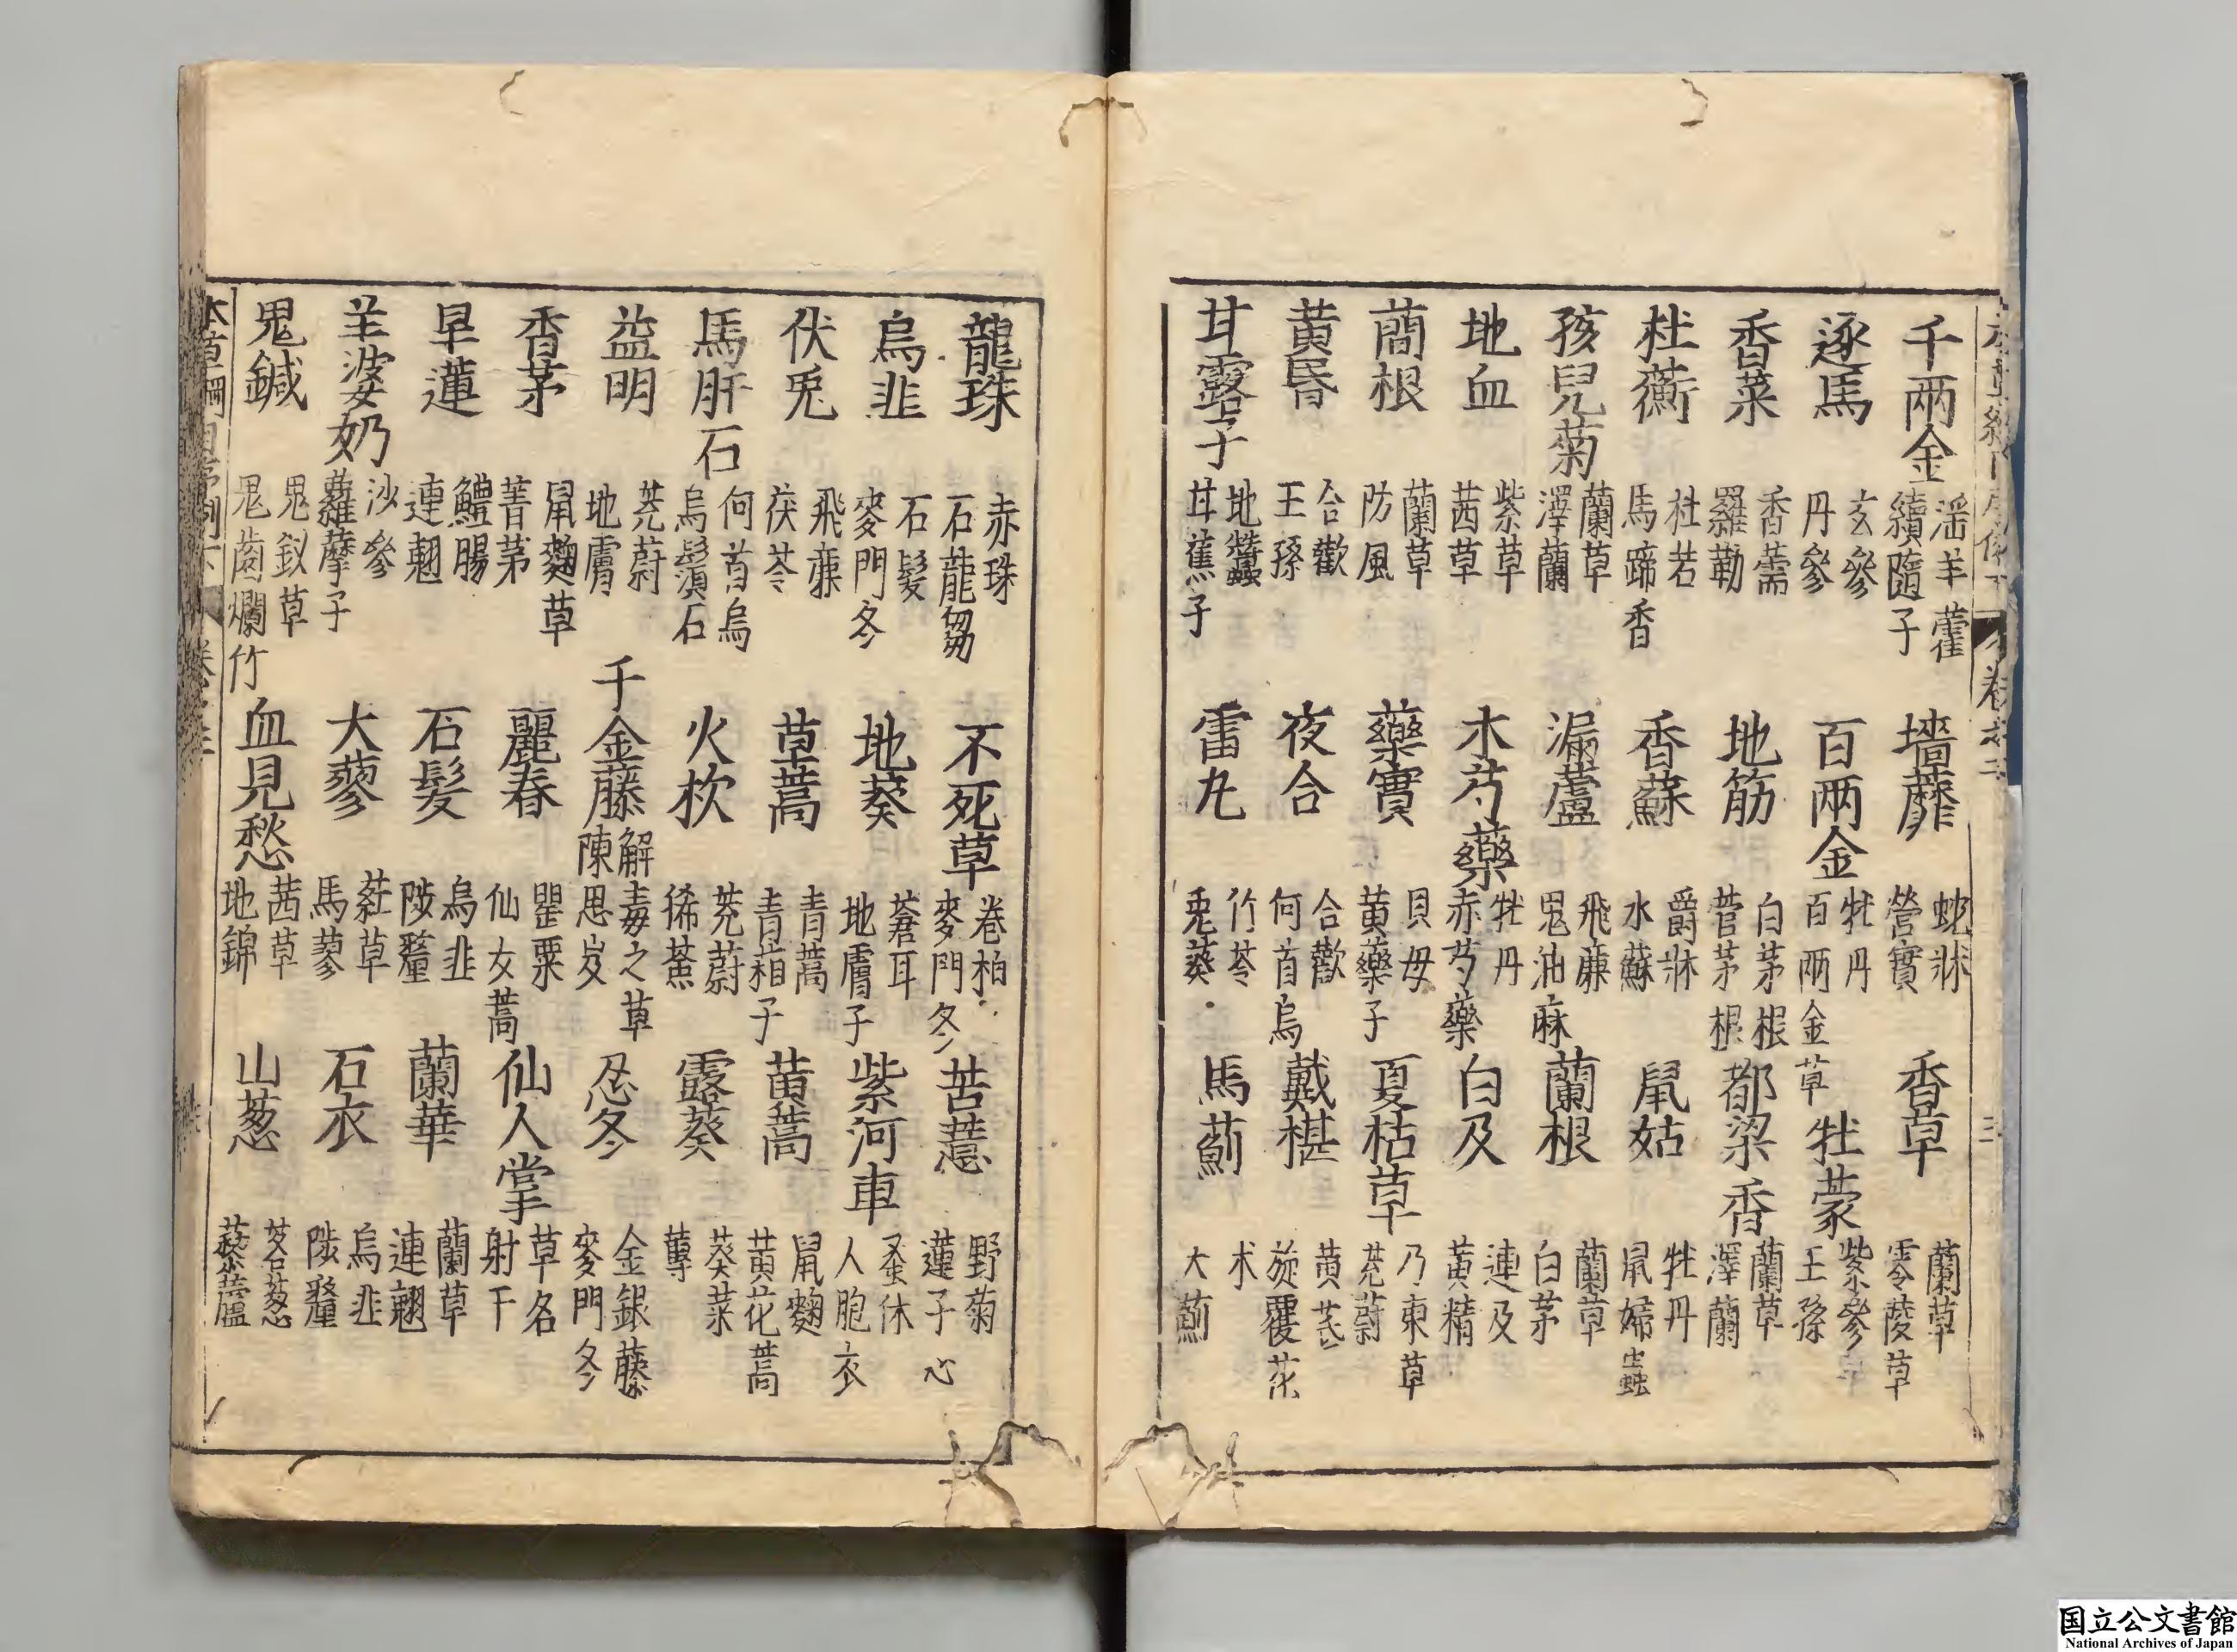 千兩金 淫羊藿 續隨子 墻蘼 蛇牀 營實 香草 蘭草 零陵草
逐馬 玄參 丹參 百兩金 牡丹 百兩金草 牡蒙 紫參 王孫
香菜 香薷 羅勒 地筋 白茅根 菅茅根 都梁香 蘭草 澤蘭
杜蘅 杜若 馬蹄香 香蘇 爵牀 水蘇 鼠姑 牡丹 鼠婦蟲
孩兒菊 蘭草 澤蘭 漏蘆 飛廉 鬼油麻 蘭根 蘭草 白茅
地血 紫草 茜草 木芍藥 牡丹 赤芍藥 白及 連及 黃精
蕳根 蘭草 防風 藥實 貝母 黃藥子 夏枯草 乃東草 茺蔚
黃昏 合歡 王孫 夜合 合歡 何首烏 戴椹 黃芪 旋覆花
甘露子 地蠶 甘蕉子 雷丸 竹苓 兎葵 馬薊 朮 大薊
龍珠 赤珠 石龍芻 不死草 卷柏 麥門冬 苦薏 野菊 蓮子心
烏韭 石髮 麥門冬 地葵 蒼耳 地膚子 紫河車 蚤休 人胞衣
伏兎 飛廉 茯苓 草蒿 青蒿 青葙子 黃蒿 鼠麴 黃花蒿
馬肝石 何首烏 烏鬚石 火杴 茺蔚 豨薟 露葵 葵菜 蓴
益明 茺蔚 地膚 千金藤 解毒之草 陳思岌 忍冬 金銀藤 麥門冬
香茅 鼠麴草 菁茅 麗春 罌粟 仙女蒿 仙人掌 草名 射干
旱蓮 鱧腸 連翹 石髮 烏韭 陟釐 蘭華 蘭草 連翹
羊婆奶 沙參 蘿藦子 大蓼 葒草 馬蓼 石衣 烏韭 陟釐
鬼鍼 鬼釵草 鬼齒爛竹 血見愁 茜草 地錦 山葱 茖葱 藜蘆
国立公文書館
National Archives of Japan